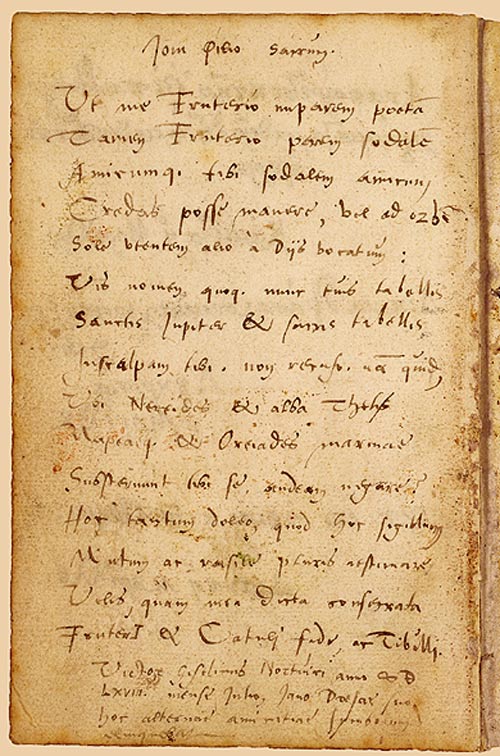 Iovi Philio sacrum.
Ut me Fruterio imparem poetã
Tamen Fruterio parem sodalẽ
Amicumq. tibi sodalem amicum
Credas posse manere, vel ad orbẽ
Sole utentem alio à Dijs vocatum:
Vis nomen quoq. nunc tuis tabellis
Sanctis Iupiter & sacris tabellis
Insculpam tibi. non recuso. nã quid,
Ubi Nereides & alba Thetis
& Oreiades marinae
Substernunt tibi se, audeam negare?
Hoc tantum doleo, quod hoc sigillum
Mutum ac rasile pluris aestimare
Velis, quam mea dicta consecrata
FruterI & Catulj fide, ac Tibulli.
Victor Giselinus anno
LXVII. mense Julio, Jano suo
hoc alternae amicitiae symbolum